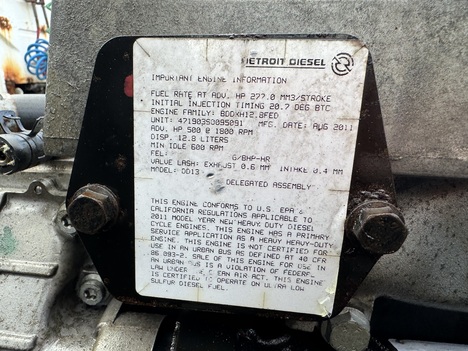 DETROIT DIESEL
IMPORTANT ENGINE INFORMATION
FUEL RATE AT ADV. HP 277.0 MM3/STROKE
INITIAL INJECTION TIMING 20.7 DEG BTC
ENGINE FAMILY: BDDXH12.8FED
UNIT: 471903S0095091 MFG. DATE: AUG 2011
ADV. HP 500 @ 1800 RPM
DISP. 12.8 LITERS
MIN IDLE 600 RPM
FEL: G/BHP-HR
VALVE LASH: EXHAUST 0.6 MM INTAKE 0.4 MM
MODEL: DD13
DELEGATED ASSEMBLY
THIS ENGINE CONFORMS TO U.S. EPA &
CALIFORNIA REGULATIONS APPLICABLE TO
2011 MODEL YEAR NEW HEAVY DUTY DIESEL
CYCLE ENGINES. THIS ENGINE HAS A PRIMARY
SERVICE APPLICATION AS A HEAVY HEAVY-DUTY
ENGINE. THIS ENGINE IS NOT CERTIFIED FOR
USE IN AN URBAN BUS AS DEFINED AT 40 CFR
86.093-2. SALE OF THIS ENGINE FOR USE IN
AN URBAN BUS IS A VIOLATION OF FEDERAL
LAW UNDER AIR ACT. THIS ENGINE
IS CERTIFIED TO OPERATE ON ULTRA LOW
SULFUR DIESEL FUEL.